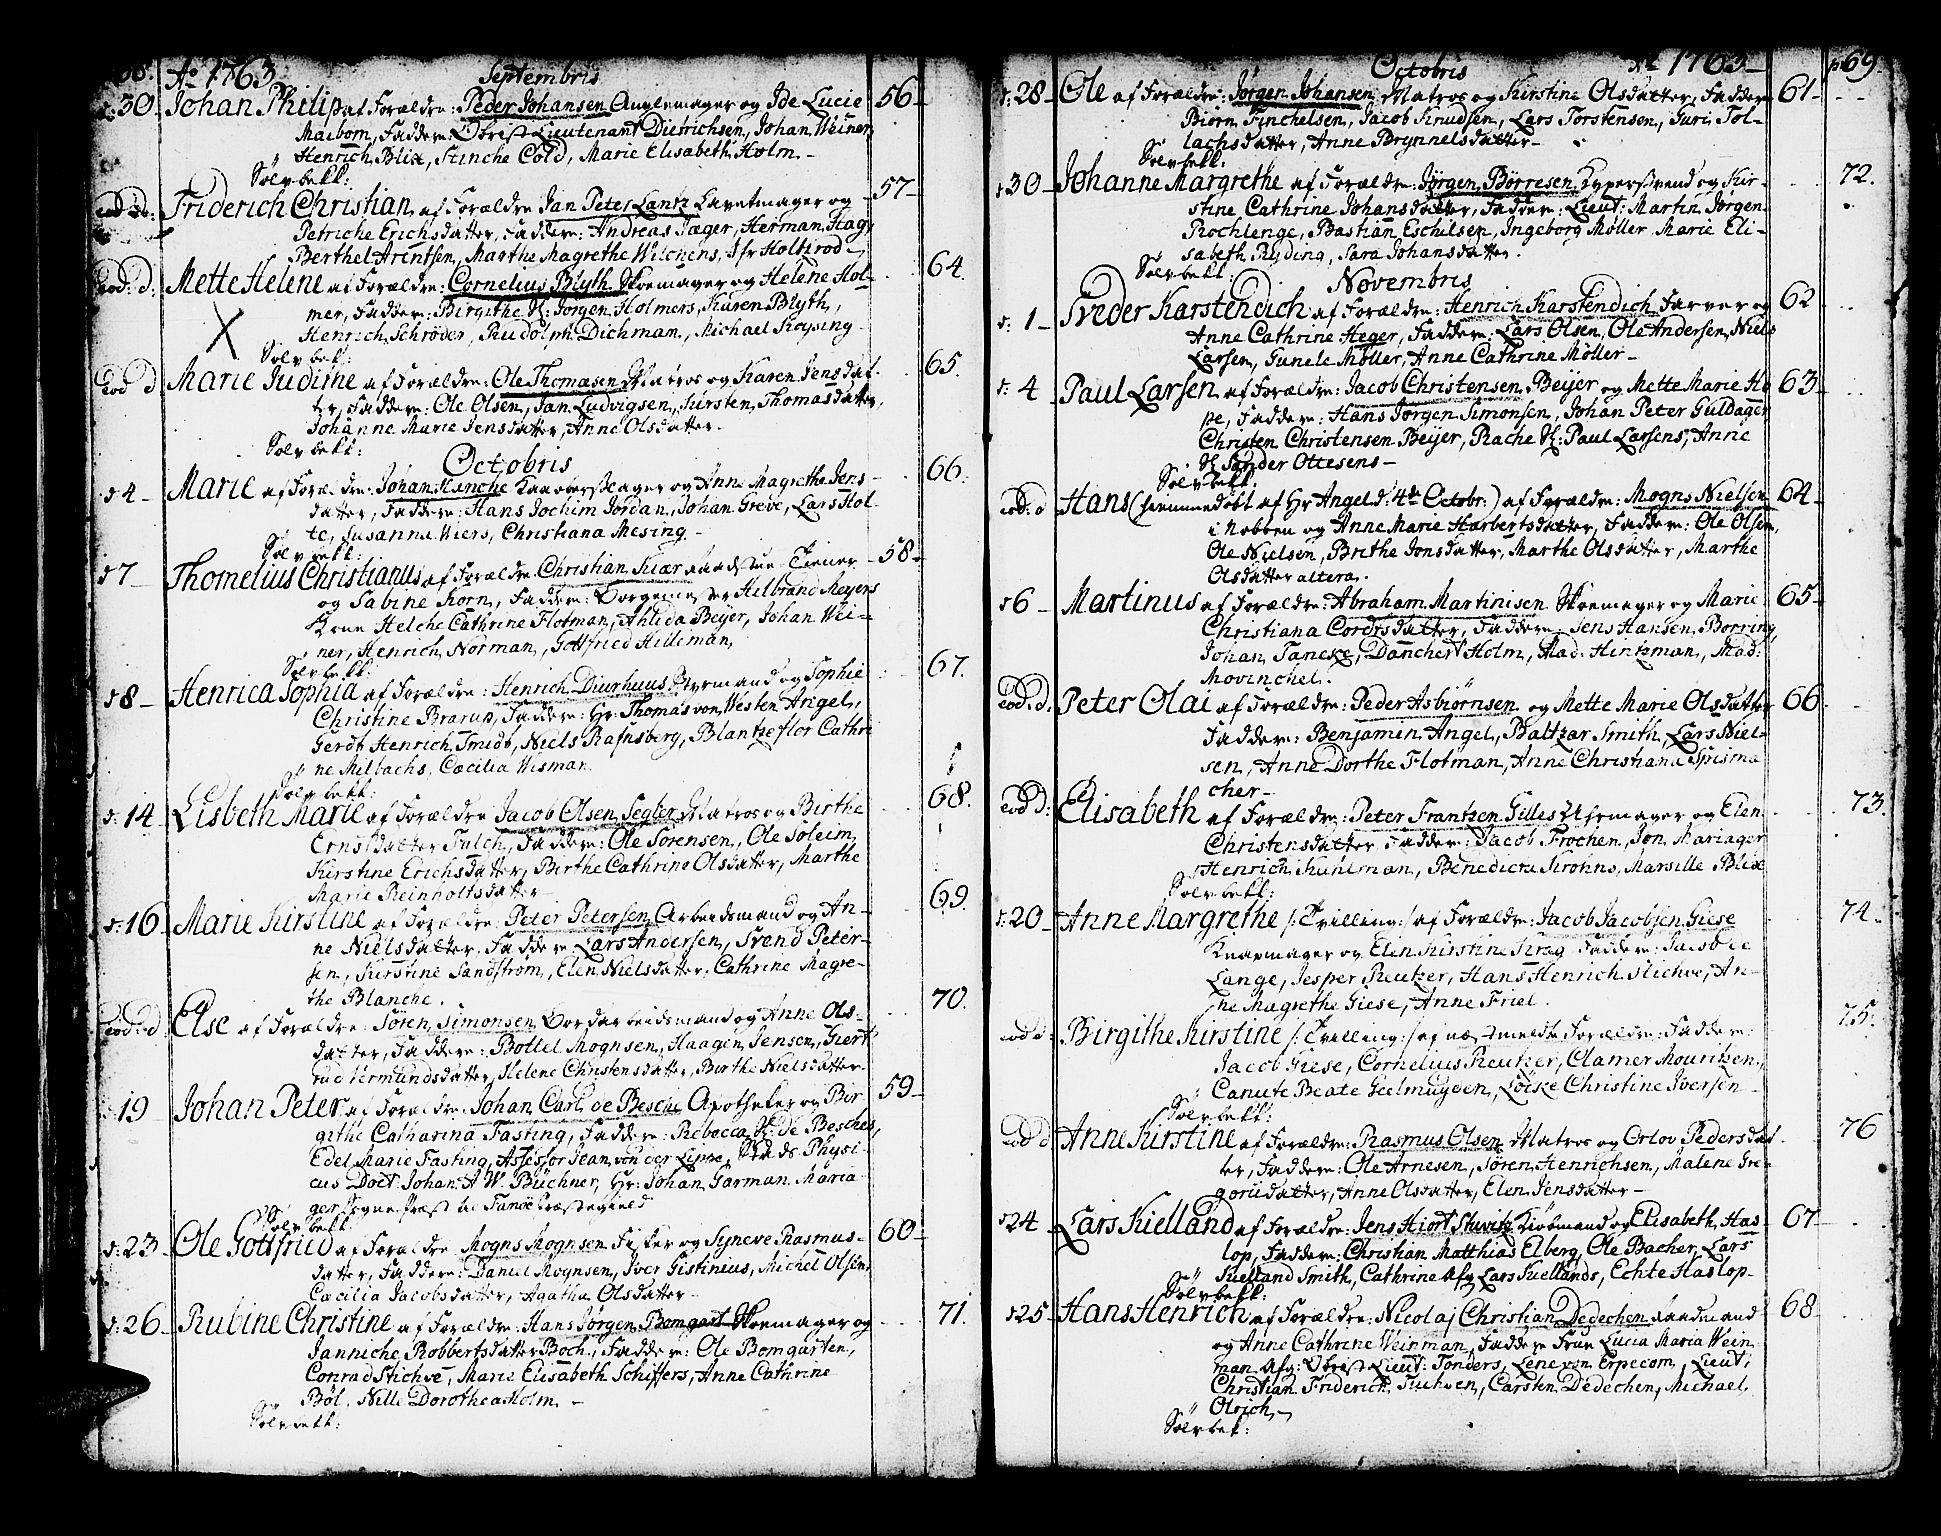 68. Ao 1763. Septembris
d: 30 Johan Philip af Forældre: Peder Johansen Anglemager og Ide Lucie 56
Maibom, Faddere Obrest Lieutenant Dietrichsen, Johan Weiner,
Henrich Blix, Stinche Cold, Marie Elisabeth Holm.
Sölvbekk:
eod d: Friderich Christian af Forældre Jan Peter Lantz Lavetmager og 57
Petriche Erichsdatter, Faddere: Andreas Jæger, Herman Hag,
Berthel Arentsen, Marthe Magrethe Wilchens, Jfr Holtzrod
eod: d: Mette Helene af Forældre: Cornelius Blyth Skoemager og Helene Hol- 64.
mer, Faddere: Birgithe K: Jörgen Holmers, Karen Blyth,
X Henrich Schröder, Rudolph Dichman, Michael Roysing
Sölvbek:
Eod d Marie Judithe af Forældre: Ole Thomæsen Matros og Karen Jensdat- 65.
ter, Faddere: Ole Olsen, Jan Ludvigsen, Kirsten Thomasdatter,
Johanne Marie Jensdatter, Anne Olsdatter.
Sölvbekk:
Octobris
d 4 Marie af Forældre: Johan Hanche Kaaberslager og Anne Magrethe Jens- 66.
datter, Faddere: Hans Jochim Jordan, Johan Greve, Lars Hol-
te, Susanna Wiers, Christiana Mesing
Sölvbekk:
d 7 Thomelius Christianus af Forældre Christian Kiær Raadstue Tiener 58
og Sabine Korn, Faddere: Borgemester Hilbrand Meyers
Kone Helche Cathrine Flotman, Ahlida Beyer, Johan Wei-
ner, Henrich Norman, Gottfried Hilleman,
Sölvbekk:
d 8 Henrica Sophia af Forældre: Henrich Diurhuus Styrmand og Sophie 67.
Christine Brarup, Faddere: Hr: Thomas von Westen Angel,
Gerdt Henrich Smidt, Niels Rafnsberg, Blantzeflor Cathri
ne Milbachs, Cæcilia Wisman
Sölvbekk:
d: 14 Lisbeth Marie af Forældre Jacob Olsen Segler Matros og Birthe 68.
Ernstdatter Fulch, Faddere: Ole Sörensen, Ole Soleim,
Kirstine Erichsdatter, Birthe Cathrine Olsdatter, Marthe
Marie Reinholtsdatter
d: 16 Marie Kirstine af Forældre: Peter Petersen Arbeidsmand og An- 69.
ne Nielsdatter, Faddere Lars Andersen, Svend Peter-
sen, Kirstine Sandstrøm, Elen Nielsdatter, Cathrine Magre-
the Blanche.
eod: d Else af Forældre: Sören Simonsen Bordarbeidsmand og Anne Ols- 70.
datter, Faddere: Bottel Mognsen, Haagen Jensen, Giert-
rud Vermundsdatter, Helene Christensdatter, Birthe Nielsdatter
19 Johan Peter af Forældre: Johan Carl de Besche Apotheker og Bir- 59
githe Catharina Fasting, Faddere: Rebecca K: de Besches,
Edel Marie Fasting, Assessor Jean von der Lippe, Stads Physi-
cus Doct: Johan A W. Büchner, Hr: Johan Garman Maria
ger Sogneprest til Fanöe Præstegield
Sölvbekk
d: 23 Ole Gottfried af Forældre Mogns Mognsen Fisker og Syneve Rasmus- 60
datter, Faddere: Daniel Mognsen, Iver Gistinius, Michel Olsen,
Cæcilia Jacobsdatter, Agatha Olsdatter
d: 26 Rubine Christine af Forældre: Hans Jörgen Bomgart Skoemager og 71.
Janniche Robbertsdatter Boch, Faddere: Ole Bomgarten,
Conrad Stichve, Marie Elisabeth Schiffers, Anne Cathrine
Böl, Nille Dorothea Holm
Sölvbekk:
Octobris Ao 1763 p 69.
d: 28 Ole af Forældre: Jörgen Johansen Matros og Kirstine Olsdatter, Faddere 61
Biörn Finchelsen, Jacob Knudsen, Lars Torstensen, Guri Tol-
lachsdatter, Anne Brynnelsdatter
Sölvbekk:
d 30 Johanne Margrethe af Forældre: Jörgen Börresen Kypersvend og Kir- 72.
stine Cathrine Johansdatter, Faddere: Lieut: Martin Jörgen
Rochlenge, Bastian Eschilsen, Ingeborg Möller, Marie Eli-
sabeth Ryding, Sara Johansdatter.
Sölvbekk:
Novembris
d: 1 Sveder Karstendich af Forældre: Henrich Karstendich Farver og 62
Anne Cathrine Heger, Faddere: Lars Olsen, Ole Andersen, Niels
Larsen, Gunele Möller, Anne Cathrine Möller
d: 4 Paul Larsen af Forældre: Jacob Christensen Beyer og Mette Marie Ho 63
pe, Faddere: Hans Jörgen Simonsen, Johan Peter Guldager
Christen Christensen Beyer, Rache K: Paul Larsens, Anne
K Sander Ottesens
Sölvbekk.
eod: d Hans (hiemmedöbt af Hr Angel d: 4de Octobr:) af Forældre: Mogns Nielsen 64
i Nobben og Anne Marie Harbertsdatter, Faddere: Ole Olsen,
Ole Nielsen, Brithe Jonsdatter, Marthe Olsdatter, Marthe
Olsdatter altera.
d 6 Martinus af Forældre: Abraham Martinisen Skoemager og Marie 65
Christiana Cordtsdatter, Faddere: Jens Hansen Borring,
Johan Taneke, Danchert Holm, Mad: Hintzman, Mad:
Movinchel.
Eod. d. Peter Olai af Forældre: Peder Asbiörnsen og Mette Marie Olsdatter 66
Faddere: Benjamin Angel, Baltzar Smith, Lars Niel-
sen, Anne Dorthe Flotman, Anne Christiana Sprisma
cher
eod d: Elisabeth af Forældre: Peter Frantzen Gilles Uhrmager og Elen 73.
Christensdatter Faddere: Jacob Frochen, Jon Mariager
Henrich Kuhlman, Benedicta Krohns, Marsille Blix
Sölvbekk:
d: 20 Anne Margrethe /: Tvilling :/ af Forældre: Jacob Jacobsen Giese 74.
Knapmager og Elen Kirstine Krag Faddere: Jacob de
Lange, Jesper Reutzer, Hans Henrich Stichve, An-
ne Magrethe Giese, Anne Friel.
eod d: Birgithe Kirstine /: Tvilling :/ af næstmeldte Forældre: Faddere: 75.
Jacob Giese, Cornelius Reutzer, Clamer Mouritzen,
Canute Beate Geelmuyden, Löiske Christine Iversen
Sölvbekk:
Eod d Anne Kirstine af Forældre: Rasmus Olsen Matros og Orlov Pedersdat- 76
ter, Faddere: Ole Arnesen, Sören Henrichsen, Malene Gre-
goriidatter, Anne Olsdatter, Elen Jensdatter
d 24 Lars Kielland af Forældre: Jens Hiort Stuvitz Kiöbmand og Elisabeth Has- 67
lop, Faddere: Christian Matthias Elberg, Ole Bacher, Lars
Kielland Smith, Cathrine Afg Lars Kiellands, Echte Haslop
Sölvbekk:
d 25 Hans Henrich af Forældre: Nicolaj Christian Dedechen Raadmand 68
og Anne Cathrine Weinman, Faddere Frue Lucia Maria Wein
man Afg: Obrest Lieut: Tonders, Lene von Erpecom, Lieut:
Christian Friderich Fuchsen, Carsten Dedechen, Michael
Olrich
Sölvbek: